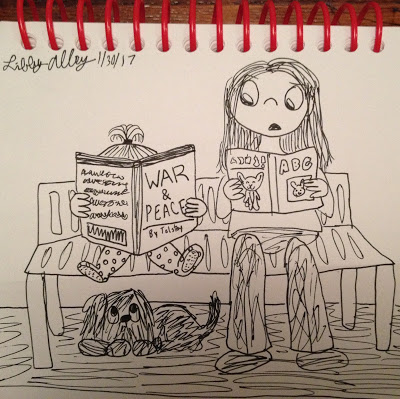 Libby Alley 1/30/17
WAR
&
PEACE
By Tolstoy
ABC